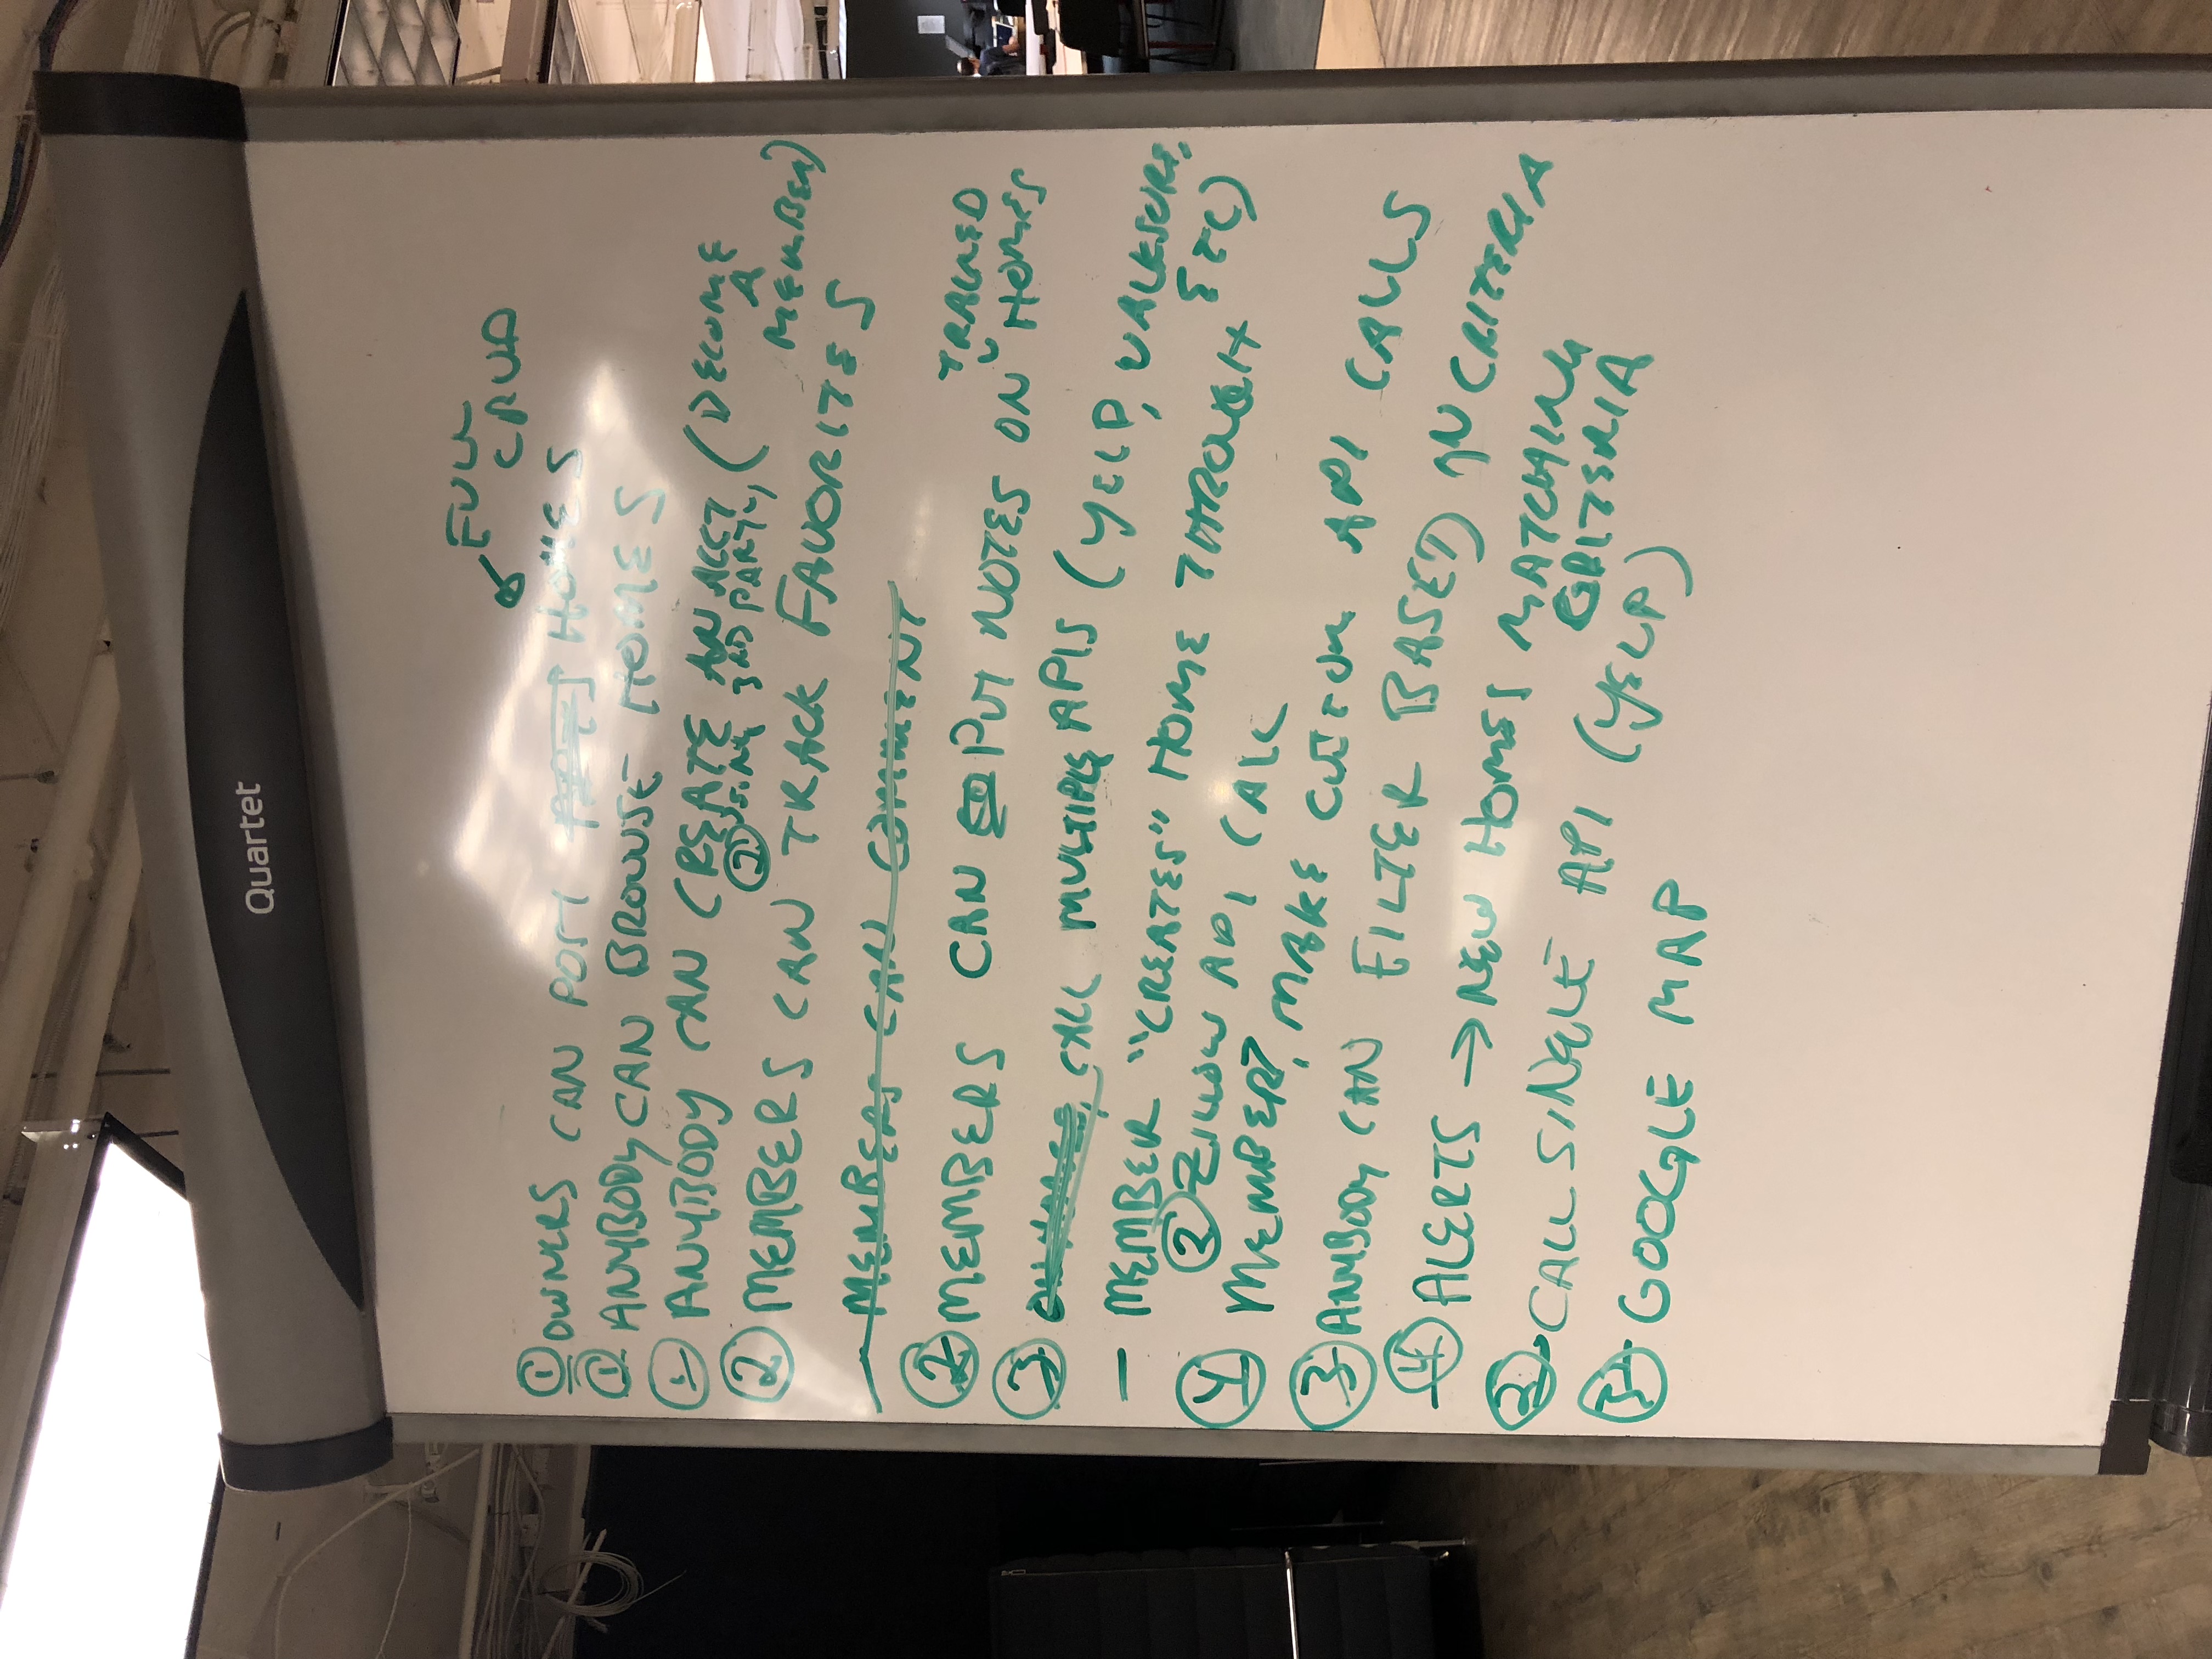 Quartet
FULL
CRUD
① OWNERS CAN POST HOMES
① ANYBODY CAN BROWSE HOMES
① ANYBODY CAN CREATE AN ACCT (BECOME
A
MEMBER)
② USING 3RD PARTY
② MEMBERS CAN TRACK FAVORITES
— MEMBERS CAN COMMENT
TRACKED
② MEMBERS CAN PUT NOTES ON HOMES
③ CALL MULTIPLE APIS (YELP, WALKSCORE,
ETC)
— MEMBER "CREATES" HOME THROUGH
② ZILLOW API CALL
④ MEMBER? MAKE CUSTOM API CALLS
③ ANYBODY CAN FILTER BASED ON CRITERIA
④ ALERTS → NEW HOMES MATCHING
CRITERIA
② CALL SINGLE API (YELP)
③ GOOGLE MAP